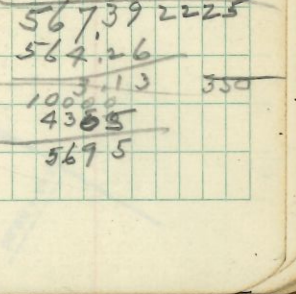 567,39 2225
564.26
3.13 350
10000
4305
5695